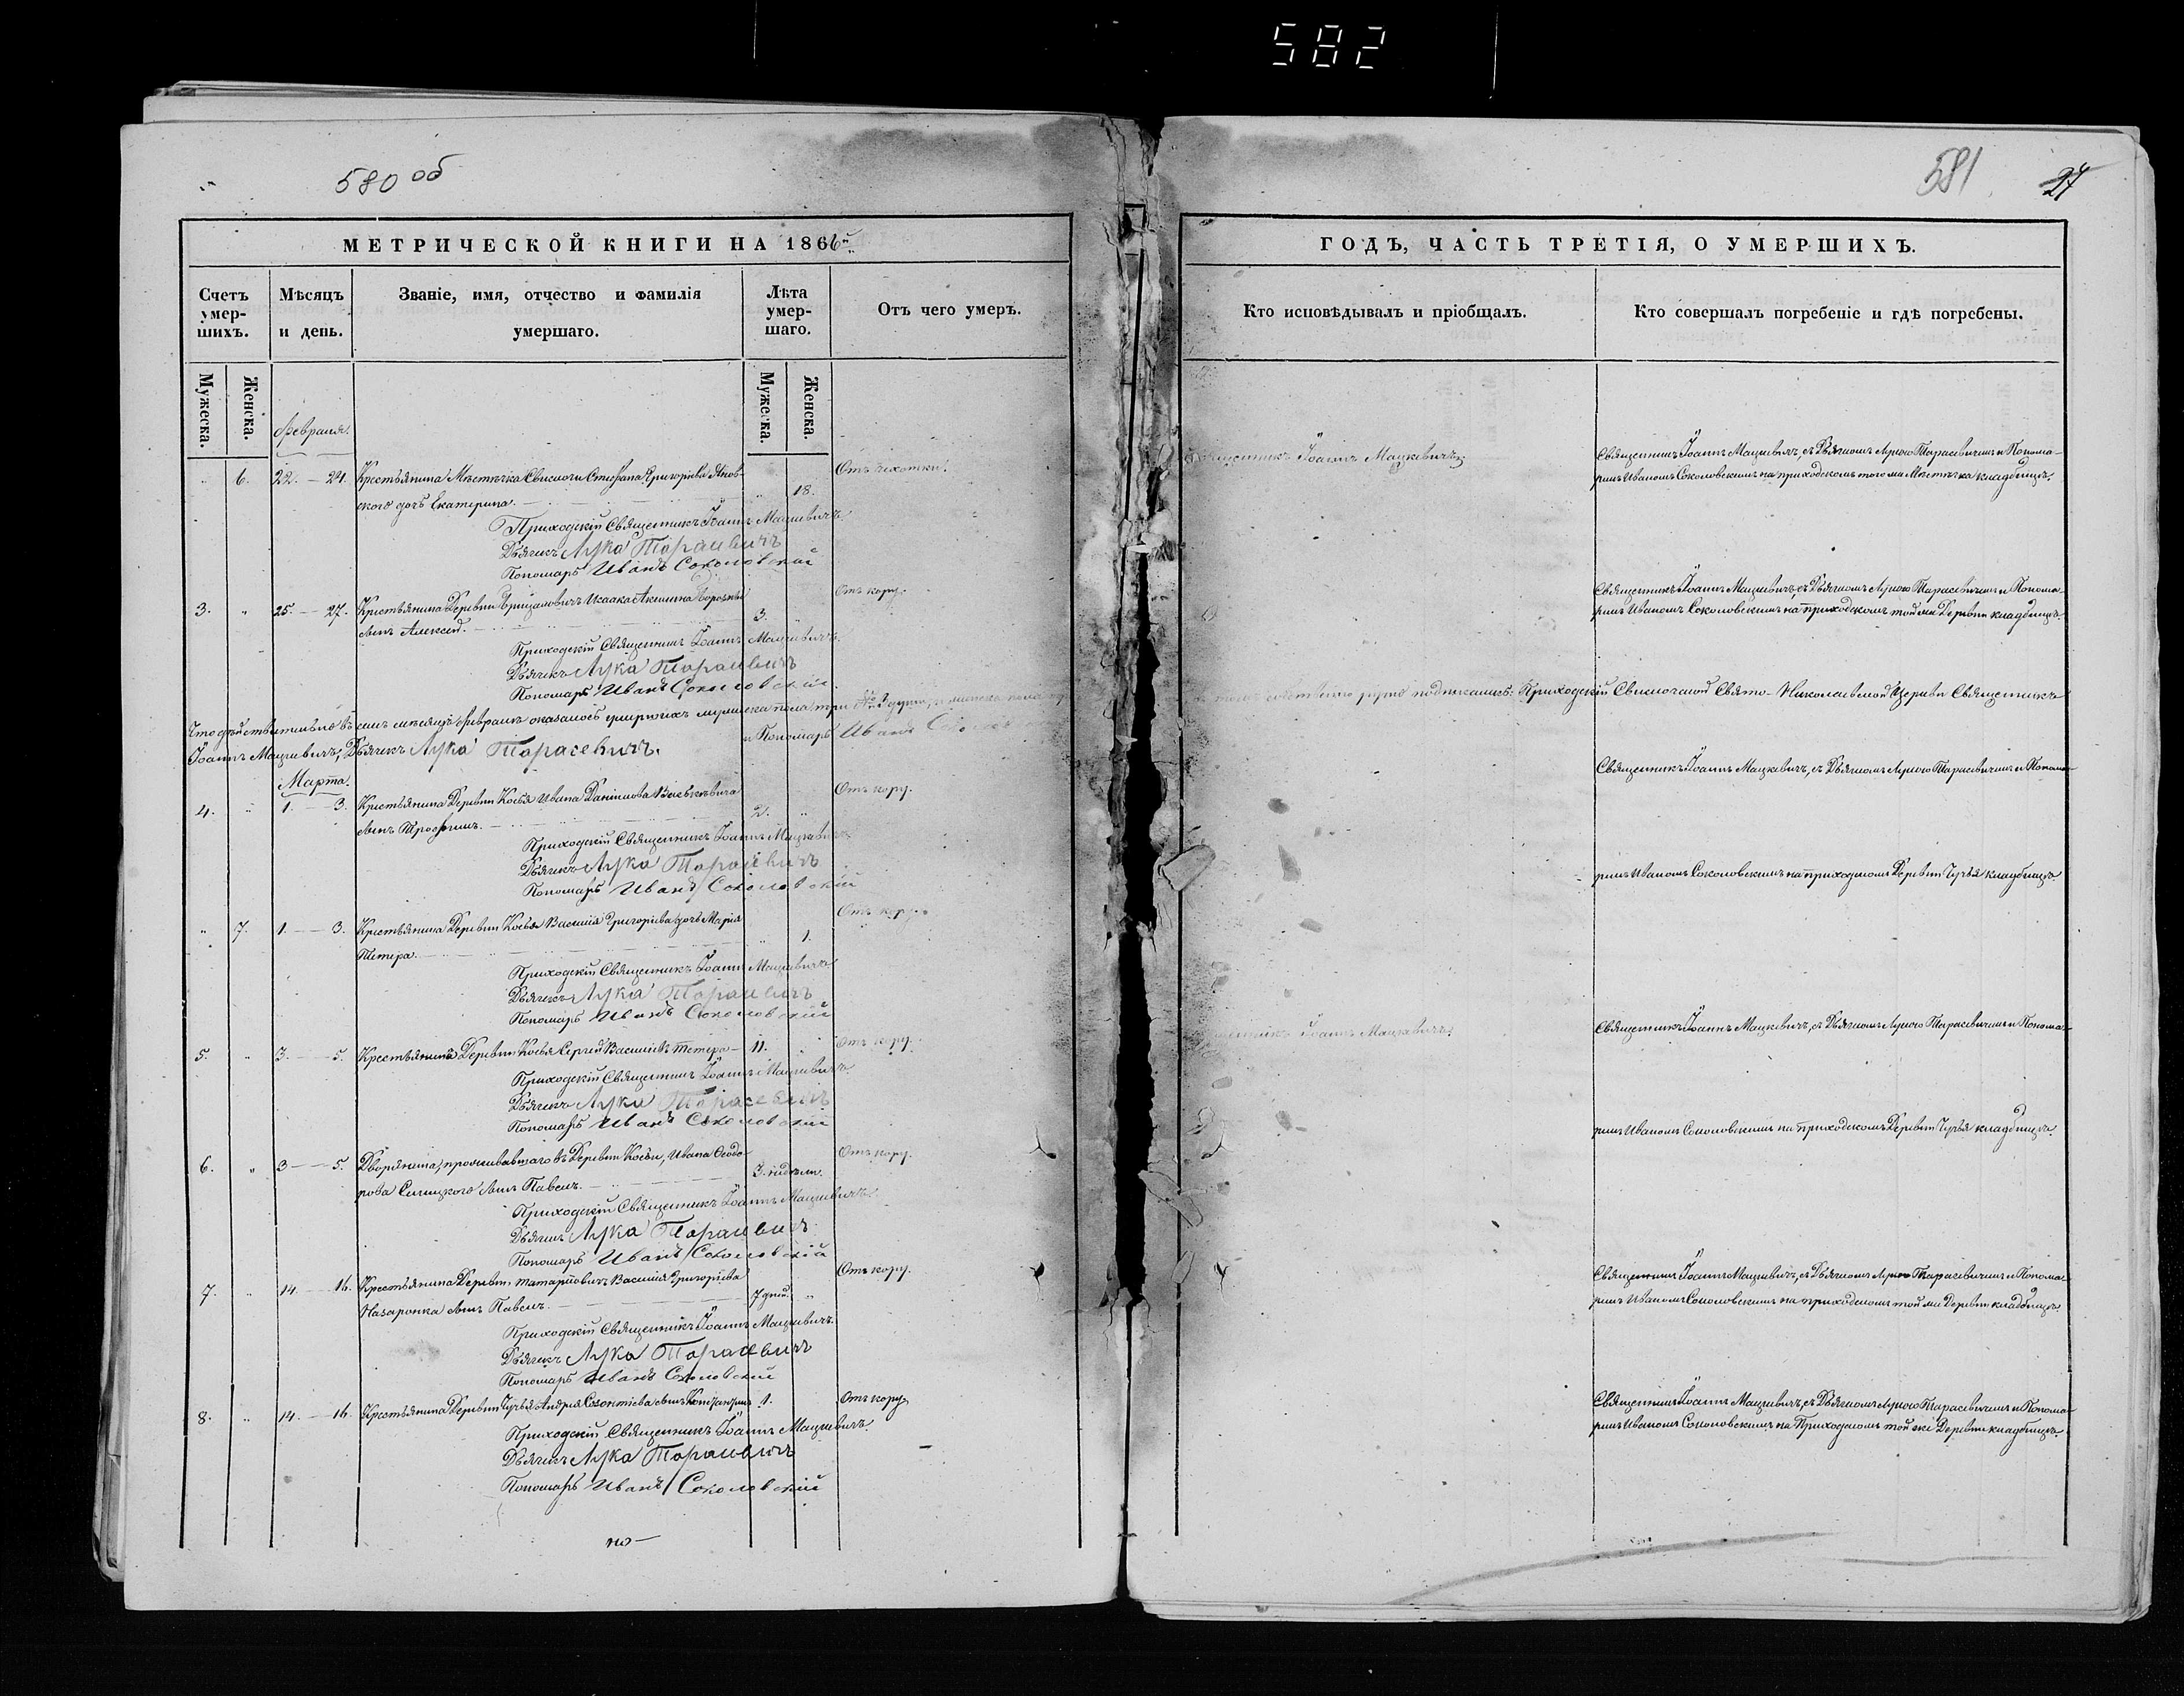 582
580 об
581
27
МЕТРИЧЕСКОЙ КНИГИ НА 1866й
ГОДЪ, ЧАСТЬ ТРЕТІЯ, О УМЕРШИХЪ.
Счетъ умер-шихъ.
Мѣсяцъ и день.
Званіе, имя, отчество и фамилія умершаго.
Лѣта умер-шаго.
Отъ чего умеръ.
Кто исповѣдывалъ и пріобщалъ.
Кто совершалъ погребеніе и гдѣ погребены.
Мужеска.
Женска.
Мужеска.
Женска.
Февраля.
6. 22. — 24. Крестьянина Мѣстечка Свислочи Стефана Григорьева
ского дочь Екатерина. 18. Отъ чахотки.
Священникъ Іоаннъ Мацкевичъ
Священникъ Іоаннъ Мацкевичъ, съ Дьячкомъ Лукою Тарасевичемъ и Понома-
ремъ Иваномъ Соколовскимъ на приходскомъ того же Мѣстечка кладбищѣ.
Приходскій Священникъ Іоаннъ Мацкевичъ
Дьячекъ Лука Тарасевичъ
Пономарь Иванъ Соколовскій
3. " 25. — 27. Крестьянина Деревни Исаака
сынъ Алексей. 3. Отъ кору.
Священникъ Іоаннъ Мацкевичъ, съ Дьячкомъ Лукою Тарасевичемъ и Понома-
ремъ Иваномъ Соколовскимъ на приходскомъ той же Деревни кладбищѣ.
Приходскій Священникъ Іоаннъ Мацкевичъ.
Дьячекъ Лука Тарасевичъ
Пономарь Иванъ Соколовскій.
Что действительно въ семъ месяцѣ Февралѣ оказалось умершихъ мужеска пола три № 3 души, а женска подписались: Приходскій Свислочской Свято-Николаевской Церкви Священникъ
Іоаннъ Мацкевичъ, Дьячекъ Лука Тарасевичъ. и Пономарь Иванъ
Марта.
4. " 1. — 3. Крестьянина Деревни Косья Ивана Даніилова
сынъ Трофимъ. 2. " Отъ кору.
Священникъ Іоаннъ Мацкевичъ, съ Дьячкомъ Лукою Тарасевичемъ и Понома-
Приходскій Священникъ Іоаннъ Мацкевичъ
Дьячекъ Лука Тарасевичъ
Пономарь Иванъ Соколовскій
ремъ Иваномъ Соколовскимъ на приходскомъ Деревни Чучья кладбищѣ.
" 7. 1. — 3. Крестьянина Деревни Косья Василія Григорьева дочь Марія
Тетера. " 1. Отъ кору.
Приходскій Священникъ Іоаннъ Мацкевичъ
Дьячекъ Лука Тарасевичъ
Пономарь Иванъ Соколовскій
5. " 3. — 5. Крестьянинъ Деревни Косья Сергей Васильевъ Тетера — 11. " Отъ кору.
Іоаннъ Мацкевичъ.
Священникъ Іоаннъ Мацкевичъ, съ Дьячкомъ Лукою Тарасевичемъ и Понома-
Приходскій Священникъ Іоаннъ Мацкевичъ.
Дьячекъ Лука Тарасевичъ
Пономарь Иванъ Соколовскій
ремъ Иваномъ Соколовскимъ на приходскомъ Деревни Чучья кладбищѣ.
6. " 3 — 5. Дворянина, проживавшаго въ Деревни Косьи, Ивана Ѳеодо-
рова сынъ Павелъ. 3. недели. Отъ кору.
Приходскій Священникъ Іоаннъ Мацкевичъ.
Дьячекъ Лука Тарасевичъ
Пономарь Иванъ Соколовскій
7. " 14. — 16. Крестьянина Деревни Татарковичъ Василія Григорьева
Назаронка сынъ Павелъ. 7 дней. " Отъ кору.
Священникъ Іоаннъ Мацкевичъ, съ Дьячкомъ Лукою Тарасевичемъ и Понома-
ремъ Иваномъ Соколовскимъ на приходскомъ той же Деревни кладбищѣ.
Приходскій Священникъ Іоаннъ Мацкевичъ.
Дьячекъ Лука Тарасевичъ
Пономарь Иванъ Соколовскій
8. " 14. — 16. Крестьянина Деревни Чучья Андрея Созонтіева сынъ Константинъ 1. Отъ кору
Священникъ Іоаннъ Мацкевичъ, съ Дьячкомъ Лукою Тарасевичемъ и Понома-
ремъ Иваномъ Соколовскимъ на Приходскомъ той же Деревни кладбищѣ.
Приходскій Священникъ Іоаннъ Мацкевичъ.
Дьячекъ Лука Тарасевичъ
Пономарь Иванъ Соколовскій